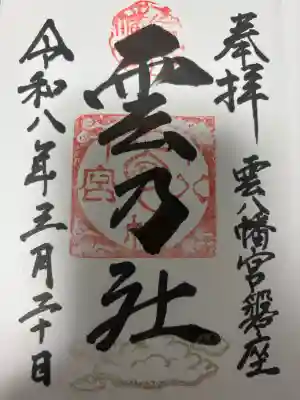 奉拝
雲八幡宮磐座
雲乃社
令和八年三月二十日